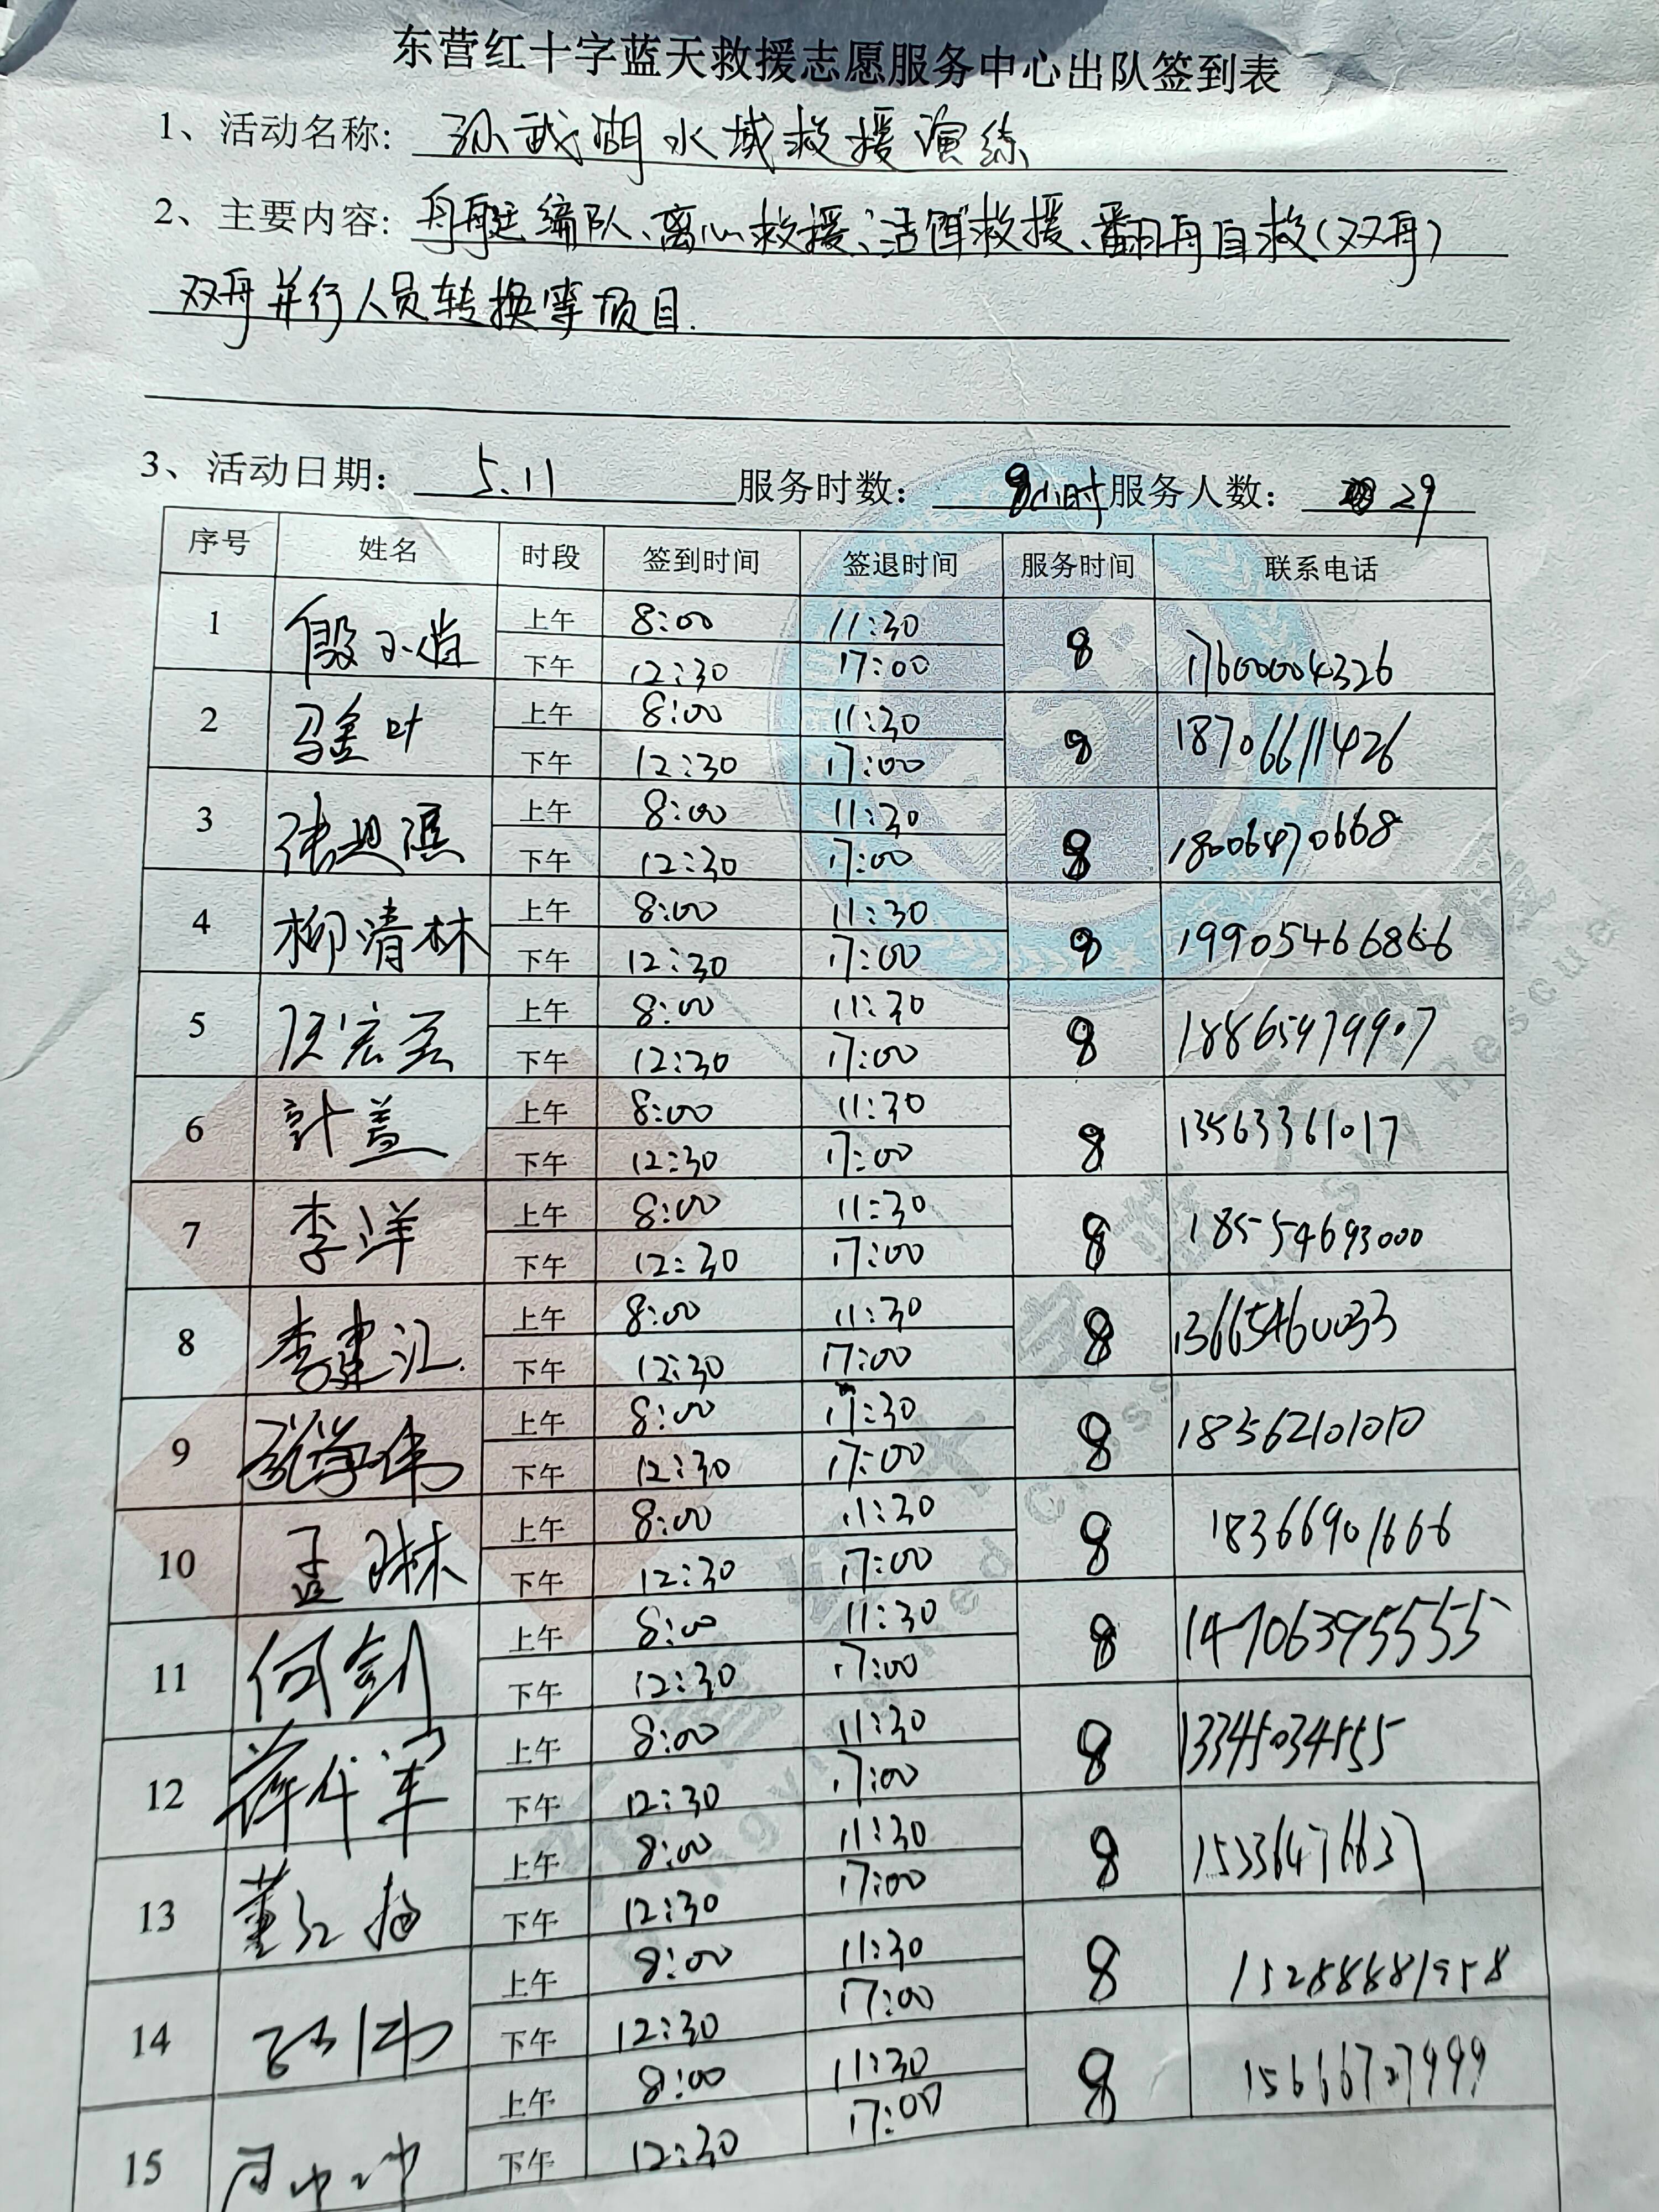 东营红十字蓝天救援志愿服务中心出队签到表
1、活动名称: 孙武湖水域救援演练
2、主要内容: 舟艇编队、离心救援、活饵救援、翻舟自救(双舟)
双舟并行人员转换等项目.
3、活动日期: 5.11 服务时数: 8小时 服务人数: 29
序号 姓名 时段 签到时间 签退时间 服务时间 联系电话
1 殷小 上午 8:00 11:30 8 17600004326
下午 12:30 17:00
2 马金叶 上午 8:00 11:30 8 18706611426
下午 12:30 17:00
3 张 上午 8:00 11:30 8 18006470668
下午 12:30 17:00
4 柳清林 上午 8:00 11:30 8 19905466866
下午 12:30 17:00
5 宏 上午 8:00 11:30 8 18865979907
下午 12:30 17:00
6 計盖 上午 8:00 11:30 8 13563361017
下午 12:30 17:00
7 李洋 上午 8:00 11:30 8 18554693000
下午 12:30 17:00
8 李建汇. 上午 8:00 11:30 8 13665460033
下午 12:30 17:00
9 张学伟 上午 8:00 11:30 8 18562101010
下午 12:30 17:00
10 孟琳 上午 8:00 11:30 8 18366901666
下午 12:30 17:00
11 何剑 上午 8:00 11:30 8 14706395555
下午 12:30 17:00
12 薛代军 上午 8:00 11:30 8 13345034555
下午 12:30 17:00
13 董红梅 上午 8:00 11:30 8 15336476637
下午 12:30 17:00
14 上午 8:00 11:30 8 15288681958
下午 12:30 17:00
15 上午 8:00 11:30 8 15666727999
下午 12:30 17:00